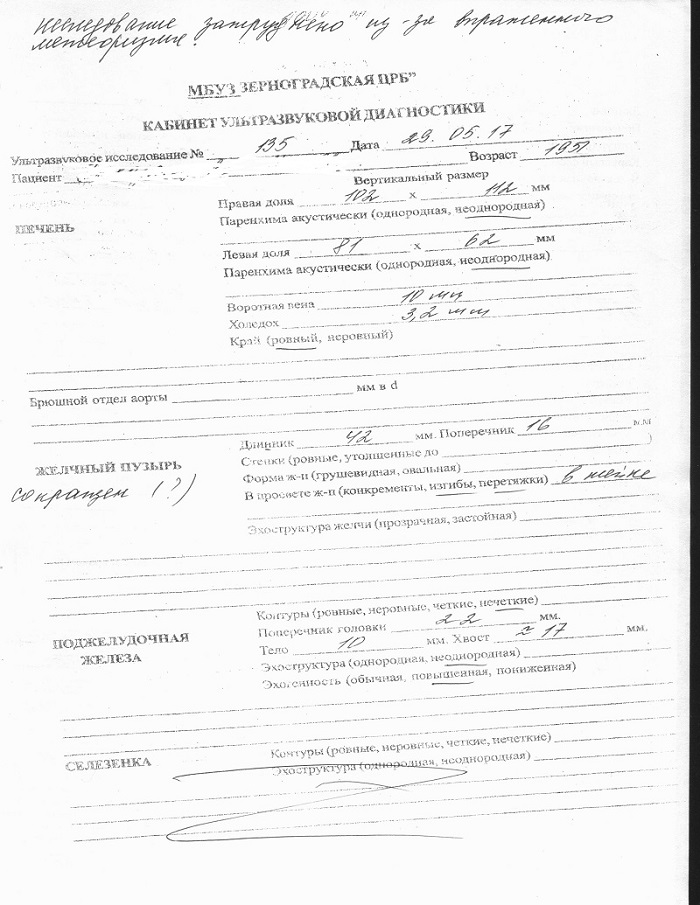 исследование затруднено из-за выраженного
метеоризма.
МБУЗ ЗЕРНОГРАДСКАЯ ЦРБ”
КАБИНЕТ УЛЬТРАЗВУКОВОЙ ДИАГНОСТИКИ
Ультразвуковое исследование № 135 Дата 29.05.17
Пациент Возраст 1951
Вертикальный размер
Правая доля 102 х 112 мм
ПЕЧЕНЬ
Паренхима акустически (однородная, неоднородная)
Левая доля 81 х 62 мм
Паренхима акустически (однородная, неоднородная)
Воротная вена 10 мм
Холедох 3,2 мм
Край (ровный, неровный)
Брюшной отдел аорты мм в d
Длинник 42 мм. Поперечник 16 мм
ЖЕЛЧНЫЙ ПУЗЫРЬ
Стенки (ровные, утолщенные до )
сокращен (?)
Форма ж-п (грушевидная, овальная)
В просвете ж-п (конкременты, изгибы, перетяжки) в шейке
Эхоструктура желчи (прозрачная, застойная)
Контуры (ровные, неровные, четкие, нечеткие)
ПОДЖЕЛУДОЧНАЯ
ЖЕЛЕЗА
Поперечник головки 22 мм.
Тело 10 мм. Хвост ≈ 17 мм.
Эхоструктура (однородная, неоднородная)
Эхогенность (обычная, повышенная, пониженная)
СЕЛЕЗЕНКА
Контуры (ровные, неровные, четкие, нечеткие)
Эхоструктура (однородная, неоднородная)